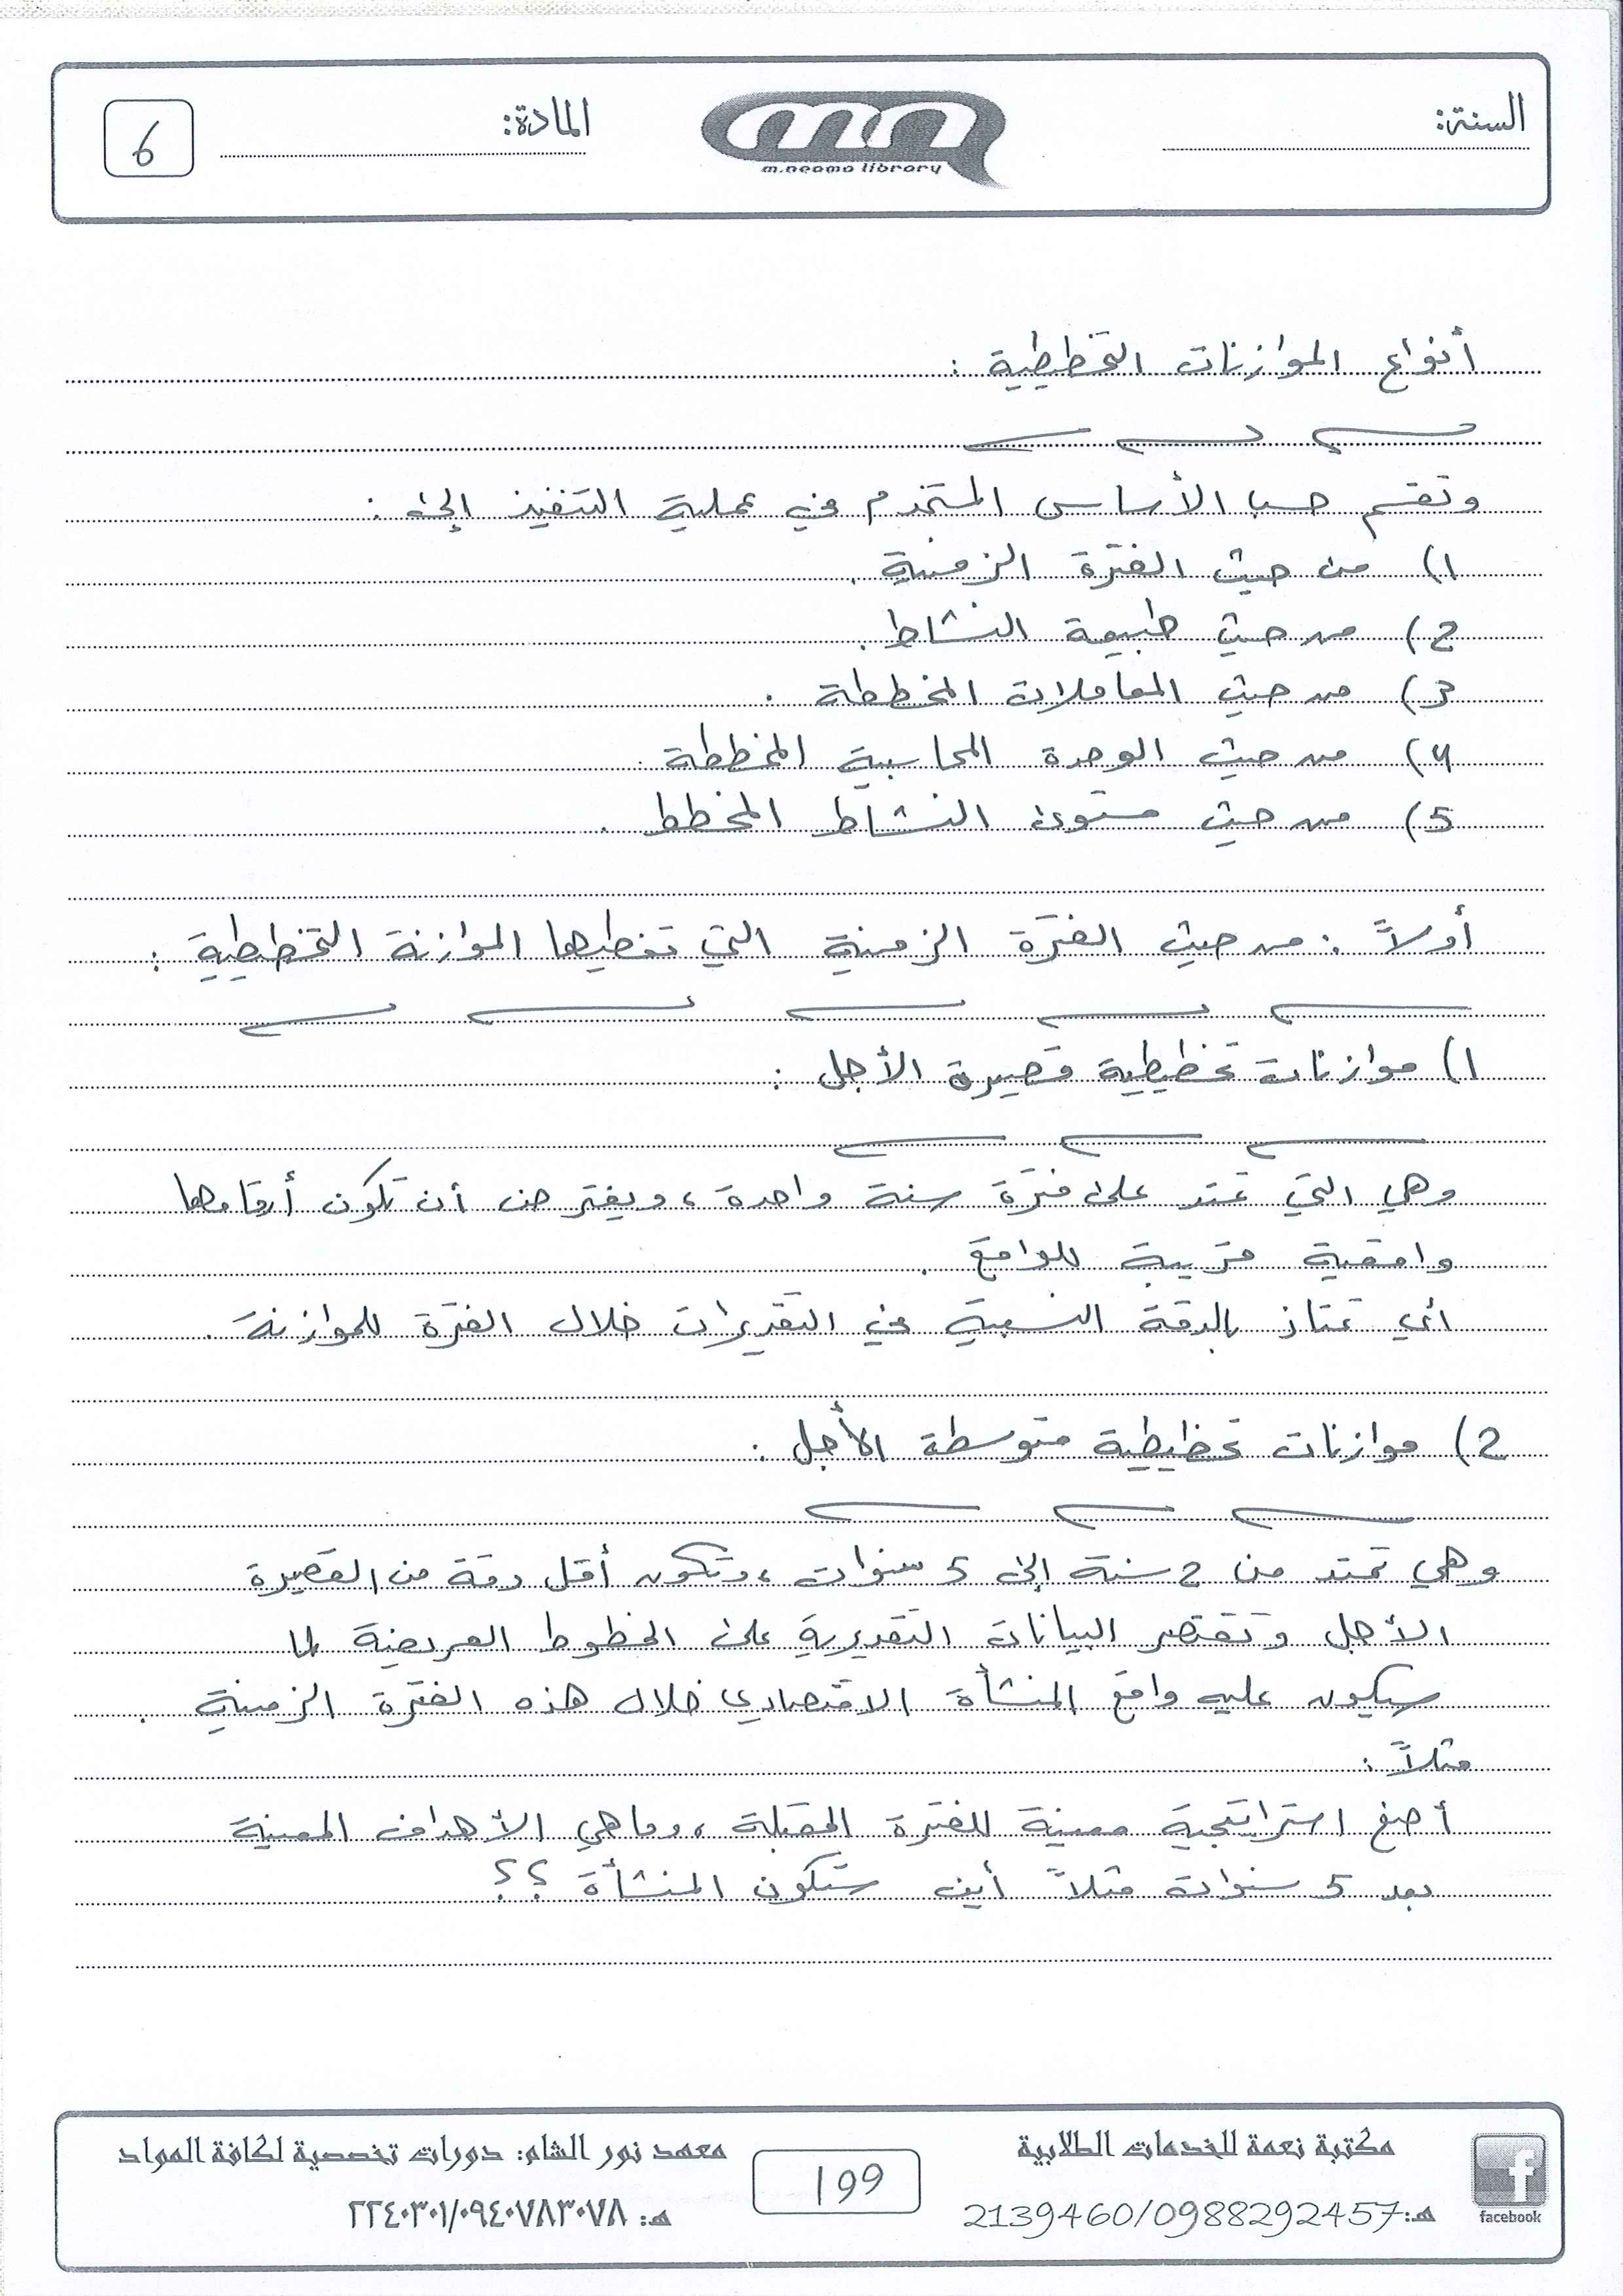 السنة:
m.neama library
المادة:
6
أنواع الموازنات التخطيطية :
وتقسم حسب الأساس المستخدم في عملية التنفيذ إلى :
1) من حيث الفترة الزمنية .
2) من حيث طبيعة النشاط .
3) من حيث المعاملات المخططة .
4) من حيث الوحدة المحاسبية المخططة .
5) من حيث مستوى النشاط المخطط .
أولاً : من حيث الفترة الزمنية التي تغطيها الموازنة التخطيطية :
1) موازنات تخطيطية قصيرة الأجل :
وهي التي تمتد على فترة سنة واحدة ، ويفترض أن تكون أرقامها
واقعية قريبة للواقع .
أي تمتاز بالدقة النسبية في التقديرات خلال الفترة للموازنة .
2) موازنات تخطيطية متوسطة الأجل :
وهي تمتد من 2 سنة إلى 5 سنوات ، وتكون أقل دقة من القصيرة
الأجل وتقتصر البيانات التقديرية على الخطوط العريضة لما
سيكون عليه واقع المنشأة الاقتصادي خلال هذه الفترة الزمنية .
مثلاً :
أضع استراتيجية معينة للفترة المقبلة ، وماهي الأهداف المعينة
بعد 5 سنوات مثلاً أين ستكون المنشأة ؟؟
مكتبة نعمة للخدمات الطلابية
هـ: 2139460/0988292457
facebook
199
معهد نور الشام: دورات تخصصية لكافة المواد
هـ: ٢٢٤٠٣٠١/٠٩٤٠٧٨٣٠٧٨